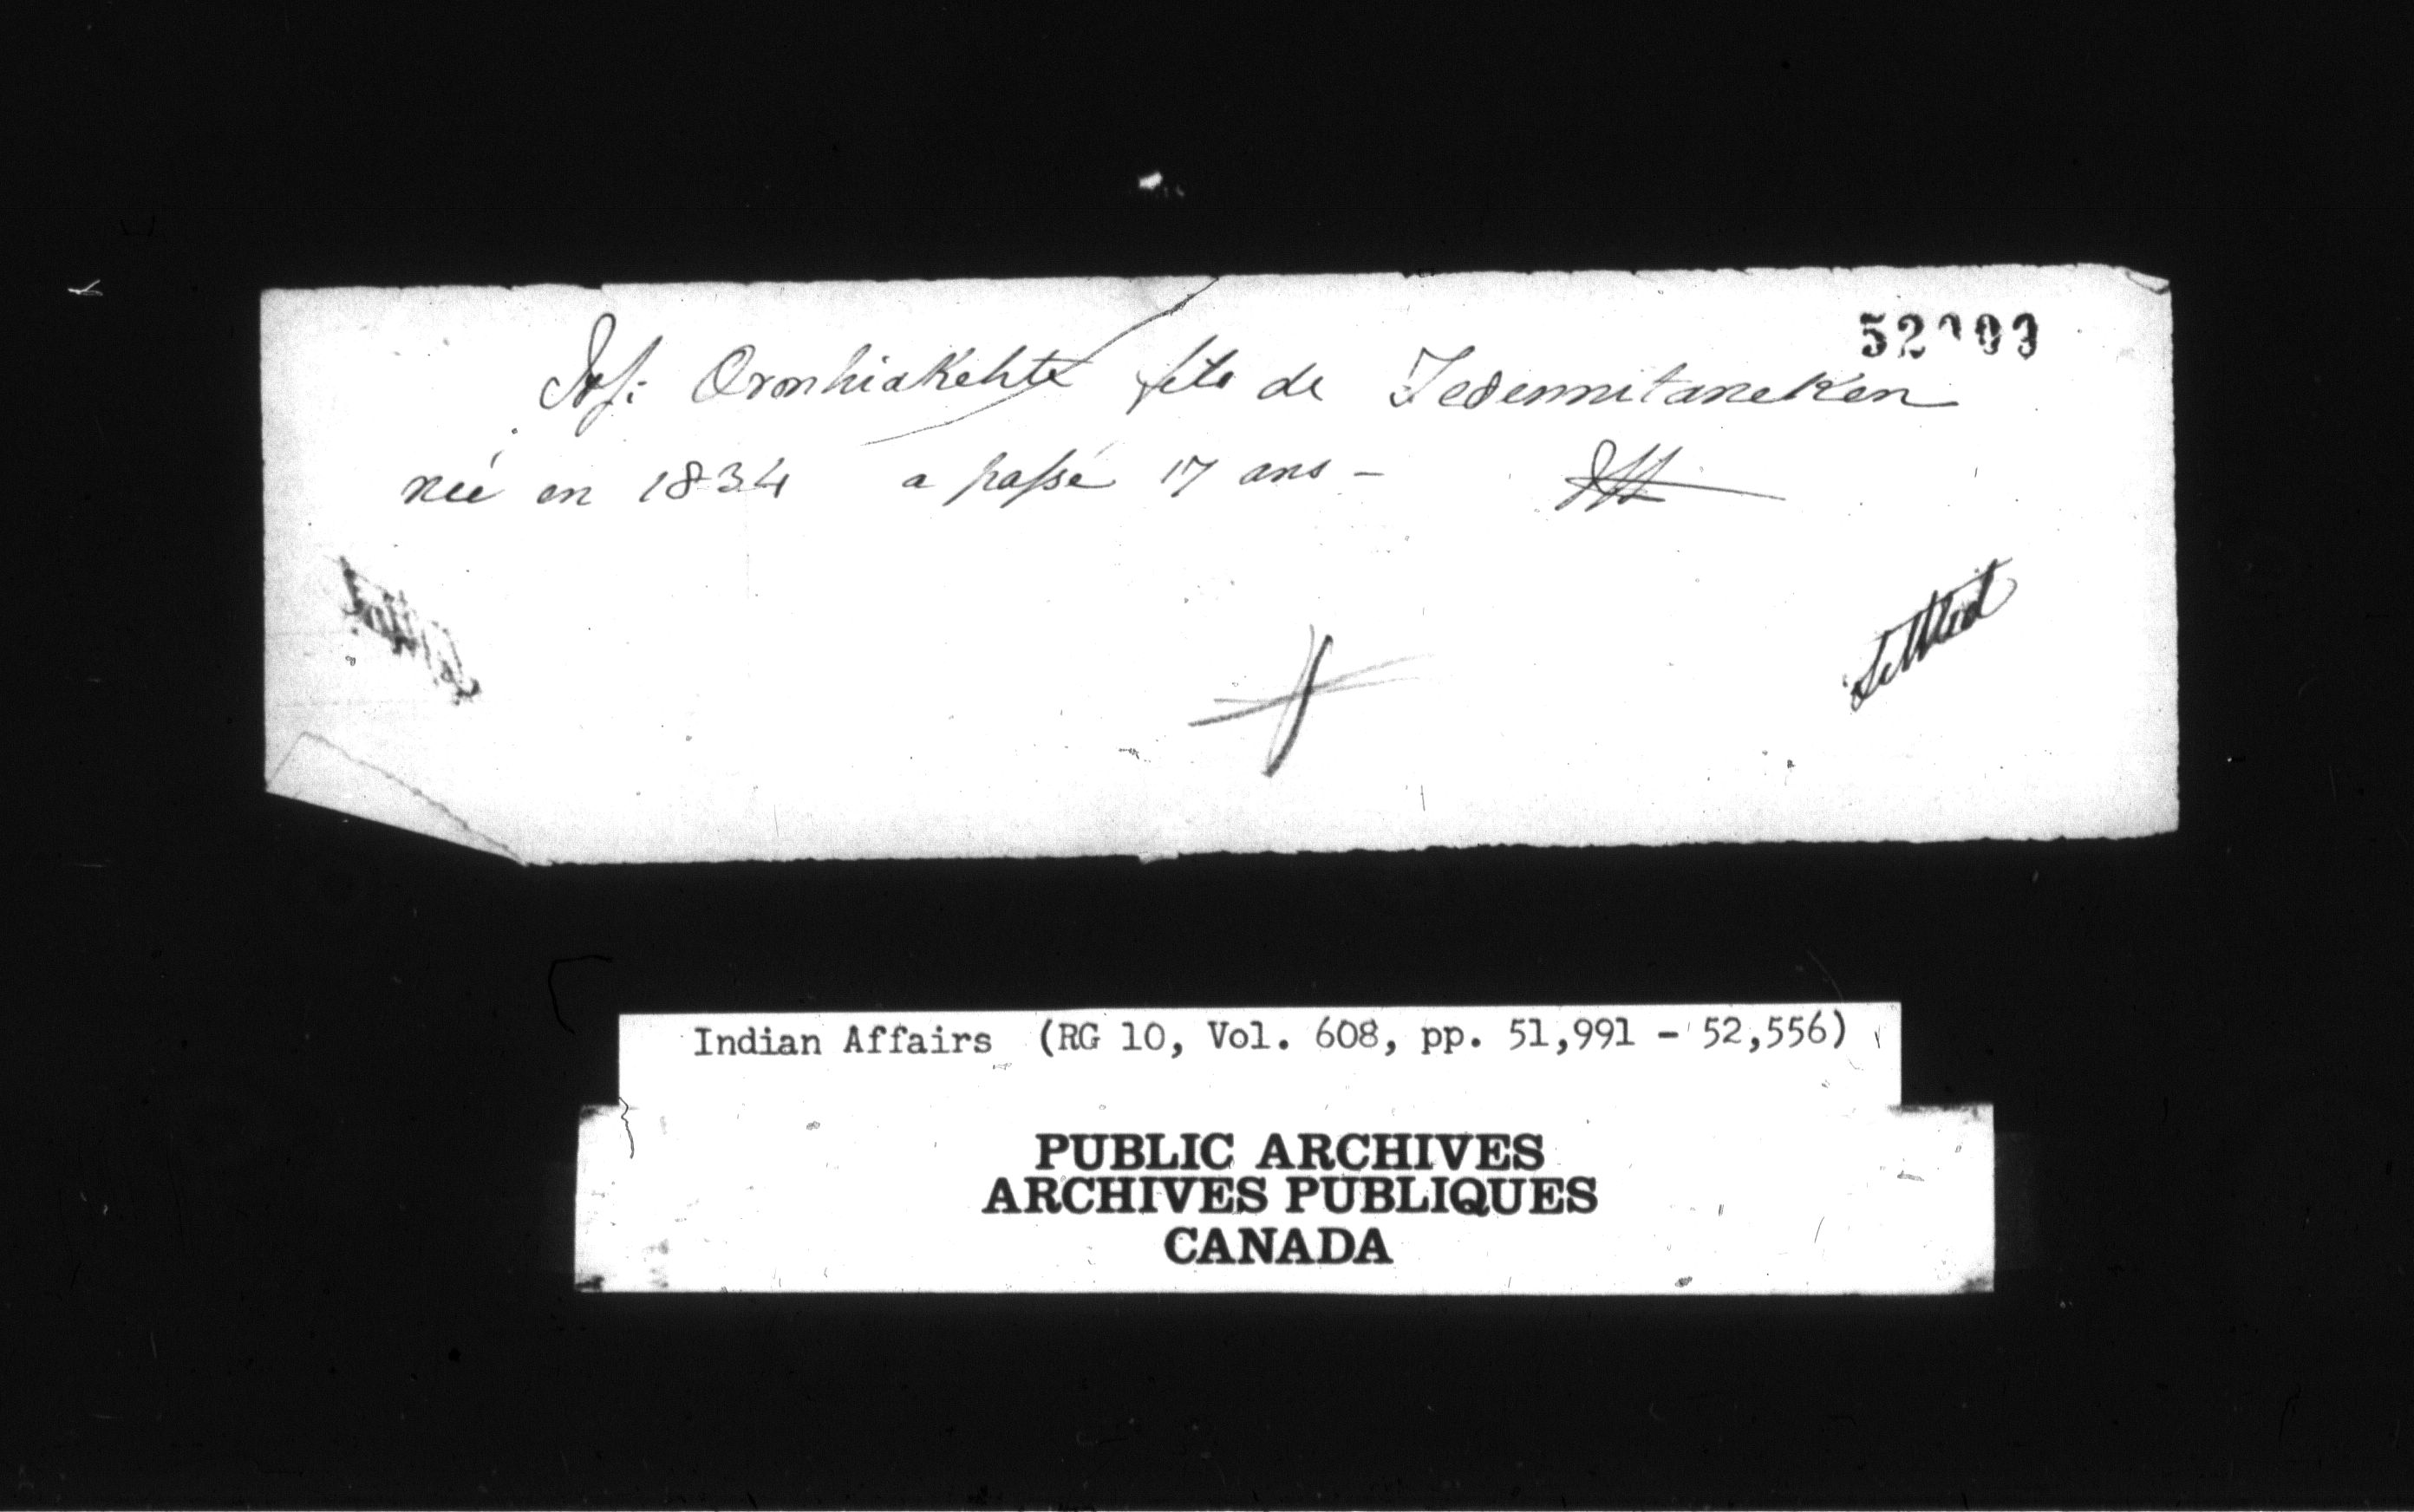 Jos: Oronhiakehte fils de Te8ennitaneken
né en 1834 a passé 17 ans –
Settled
Indian Affairs (RG 10, Vol. 608, pp. 51,991 - 52,556)
PUBLIC ARCHIVES
ARCHIVES PUBLIQUES
CANADA